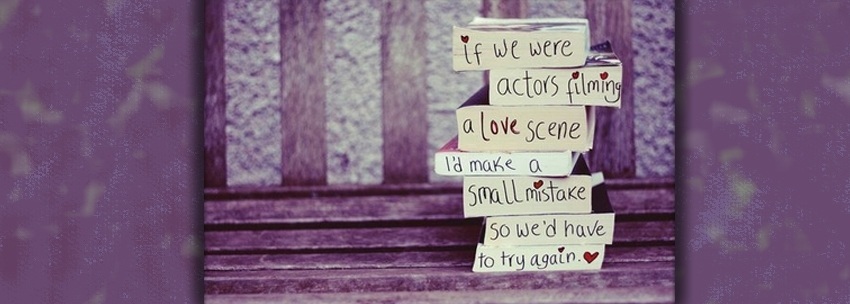 if we were
actors filming
a love scene
I'd make a
small mistake
so we'd have
to try again.